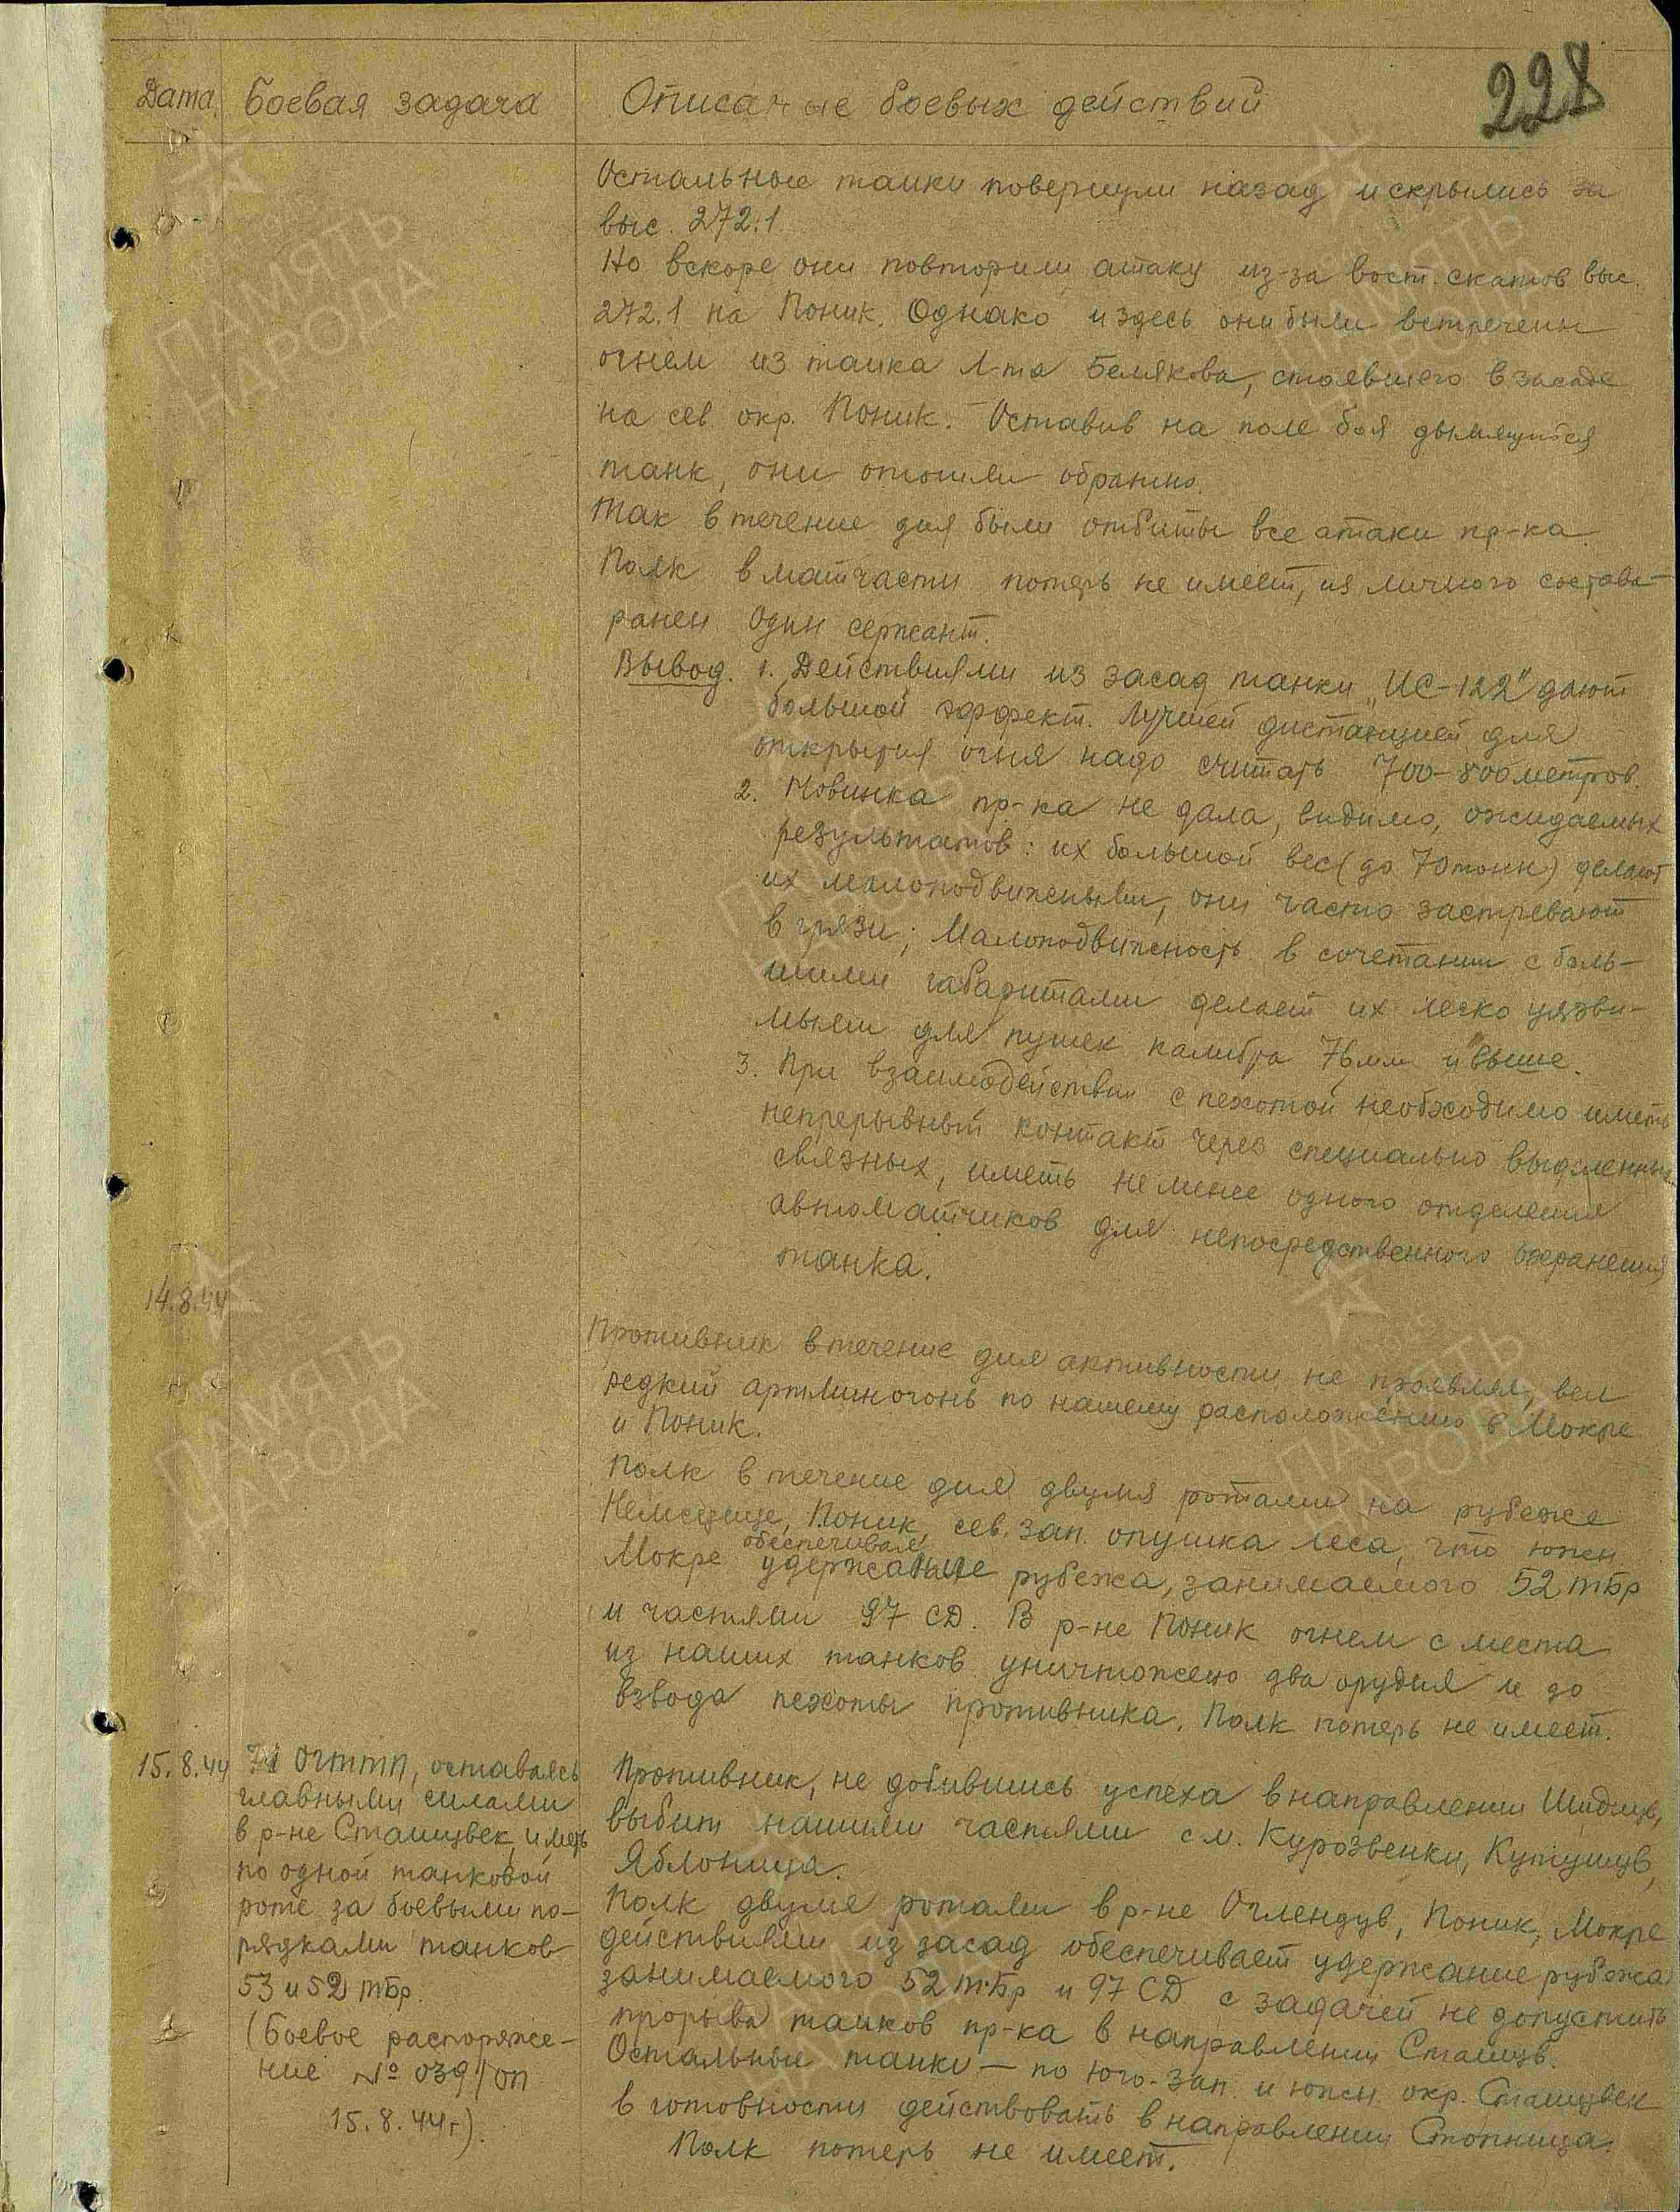 228
Дата Боевая задача Описание боевых действий
Остальные танки повернули назад и скрылись за
выс. 272.1.
Но вскоре они повторили атаку из-за вост. скатов выс.
272.1 на Поник. Однако и здесь они были встречены
огнем из танка л-та Белякова, стоявшего в засаде
на сев. окр. Поник. Оставив на поле боя дымящийся
танк, они отошли обратно.
Так в течение дня были отбиты все атаки пр-ка.
Полк в матчасти потерь не имеет, из личного состава-
ранен один сержант.
Вывод. 1. Действиями из засад танки „ИС-122" дают
большой эффект. Лучшей дистанцией для
открытия огня надо считать 700-800 метров.
2. Новинка пр-ка не дала, видимо, ожидаемых
результатов: их большой вес (до 70 тонн) делают
их малоподвижными, они часто застревают
в грязи; Малоподвижность в сочетании с боль-
шими габаритами делает их легко уязви-
мыми для пушек калибра 76мм и выше.
3. При взаимодействии с пехотой необходимо иметь
непрерывный контакт через специально выделенных
связных, иметь не менее одного отделения
автоматчиков для непосредственного охранения
танка.
14.8.44
Противник в течение дня активности не проявлял, вел
редкий артминогонь по нашему расположению в Мокре
и Поник.
Полк в течение дня двумя ротами на рубеже
Немсцице, Поник, сев. зап. опушка леса, что южн.
обеспечивал
Мокре удержание рубежа, занимаемого 52 ТБр
и частями 97 СД. В р-не Поник огнем с места
из наших танков уничтожено два орудия и до
взвода пехоты противника. Полк потерь не имеет.
15.8.44 71 ОГТТП, оставаясь
главными силами
в р-не Сташувек, иметь
по одной танковой
роте за боевыми по-
рядками танков
53 и 52 ТБр.
(Боевое распоряже-
ние № 039/оп
15.8.44г).
Противник, не добившись успеха в направлении Шидлув,
выбит нашими частями с м. Курозвенки, Кутушув,
Яблоница.
Полк двумя ротами в р-не Оглендув, Поник, Мокре
действиями из засад обеспечивает удержание рубежа
занимаемого 52 ТБр и 97 СД с задачей не допустить
прорыва танков пр-ка в направлении Сташув.
Остальные танки — по юго-зап. и южн. окр. Сташувек
в готовности действовать в направлении Стопница.
Полк потерь не имеет.
ПАМЯТЬ
НАРОДА